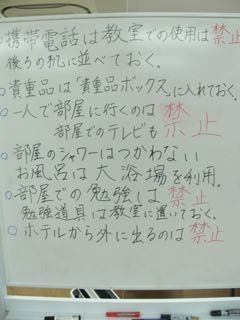 ○携帯電話は教室での使用は禁止
後ろの机に並べておく。
○貴重品は「貴重品ボックス」に入れておく。
○一人で部屋に行くのは禁止
部屋のテレビも禁止
○部屋のシャワーはつかわない
お風呂は大浴場を利用。
○部屋での勉強は禁止
勉強道具は教室に置いておく。
○ホテルから外に出るのは禁止